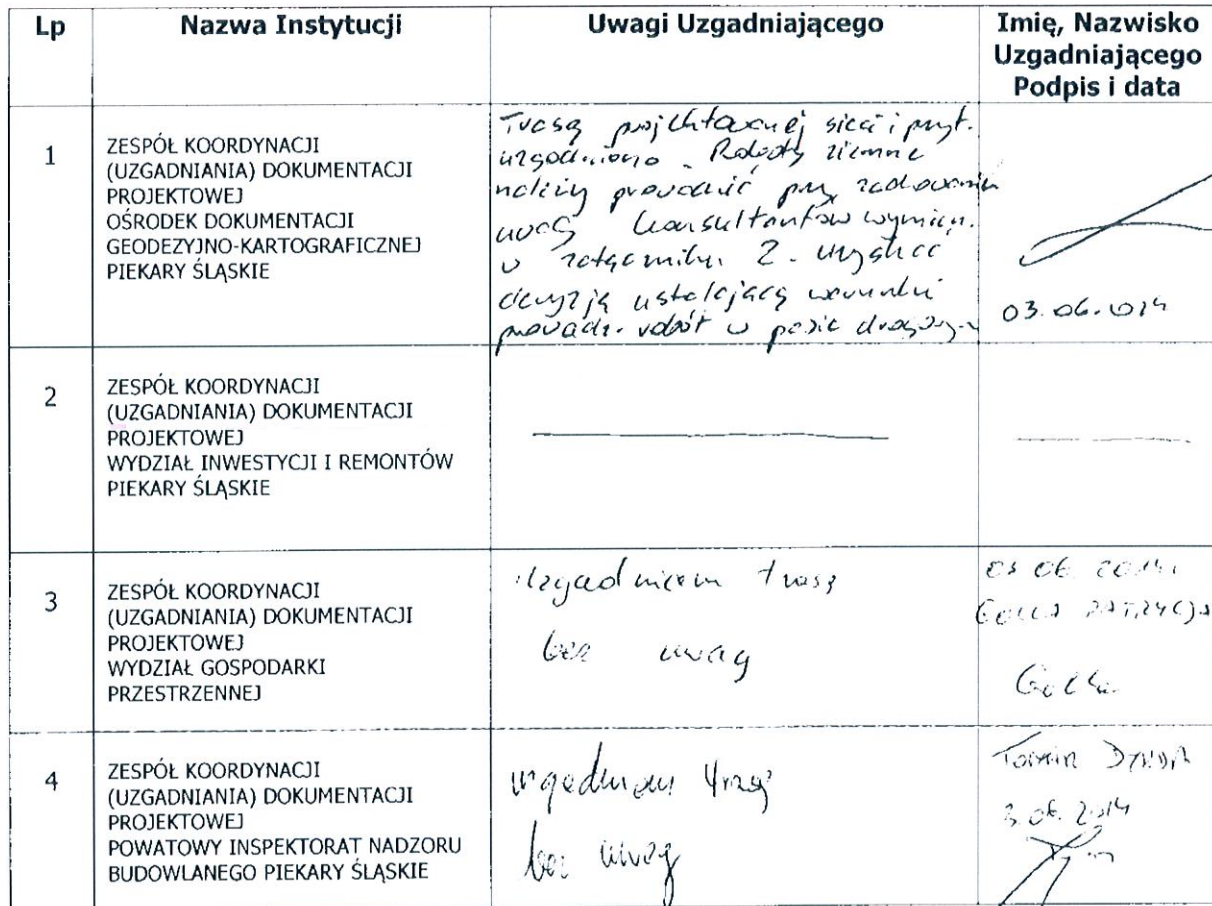 Lp Nazwa Instytucji Uwagi Uzgadniającego Imię, Nazwisko
Uzgadniającego
Podpis i data
1
ZESPÓŁ KOORDYNACJI
(UZGADNIANIA) DOKUMENTACJI
PROJEKTOWEJ
OŚRODEK DOKUMENTACJI
GEODEZYJNO-KARTOGRAFICZNEJ
PIEKARY ŚLĄSKIE
Trasę projektowanej sieci i przył.
uzgodniono. Roboty ziemne
należy prowadzić przy zachowaniu
uwag konsultantów wymien.
w załączniku. 2. uzyskać
decyzję ustalającą warunki
prowadz. robót w pasie
03.06.2014
2
ZESPÓŁ KOORDYNACJI
(UZGADNIANIA) DOKUMENTACJI
PROJEKTOWEJ
WYDZIAŁ INWESTYCJI I REMONTÓW
PIEKARY ŚLĄSKIE
3
ZESPÓŁ KOORDYNACJI
(UZGADNIANIA) DOKUMENTACJI
PROJEKTOWEJ
WYDZIAŁ GOSPODARKI
PRZESTRZENNEJ
Uzgadniam trasę
bez uwag
4
ZESPÓŁ KOORDYNACJI
(UZGADNIANIA) DOKUMENTACJI
PROJEKTOWEJ
POWATOWY INSPEKTORAT NADZORU
BUDOWLANEGO PIEKARY ŚLĄSKIE
uzgadniam trasę
bez uwag
3.06.2014